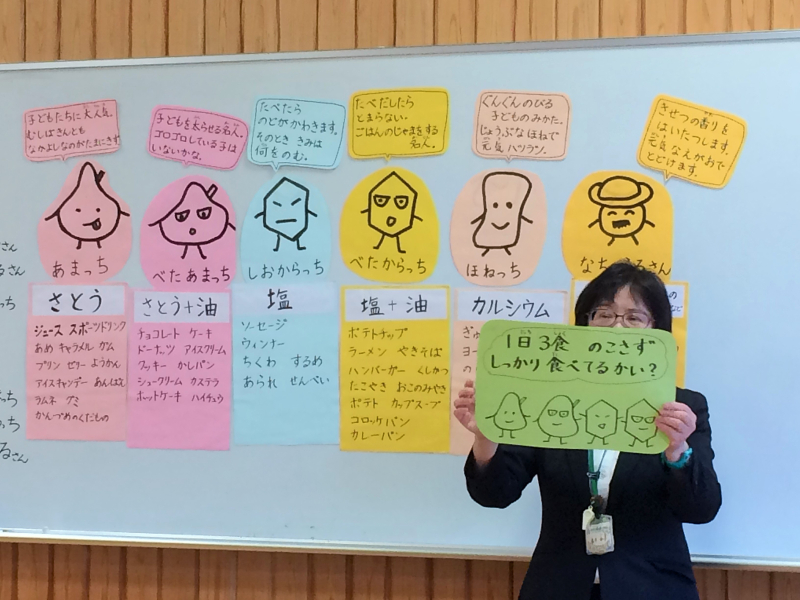 子どもたちに大人気
むしばきんとも
なかよしなのがたまにきず
あまっち
さとう
ジュース スポーツドリンク
あめ キャラメル ガム
プリン ゼリー ようかん
アイスキャンデー あんぱん
ラムネ グミ
かんづめのくだもの
子どもを太らせる名人。
ゴロゴロしている子は
いないかな。
べたあまっち
さとう+油
チョコレート ケーキ
ドーナッツ アイスクリーム
クッキー かしパン
シュークリーム カステラ
ホットケーキ ハイチュウ
たべたら
のどがかわきます。
そのとき きみは
何をのむ。
しおからっち
塩
ソーセージ
ウィンナー
ちくわ するめ
あられ せんべい
たべだしたら
とまらない。
ごはんのじゃまをする
名人。
べたからっち
塩+油
ポテトチップ
ラーメン やきそば
ハンバーガー くしかつ
たこやき おこのみやき
ポテト カップスープ
コロッケパン
カレーパン
ぐんぐんのびる
子どものみかた。
じょうぶなほねで
元気ハツラツ。
ほねっち
カルシウム
きせつの香りを
はいたつします。
元気なえがおで
とどけます。
さん
1日3食 のこさず
しっかり食べてるかい?